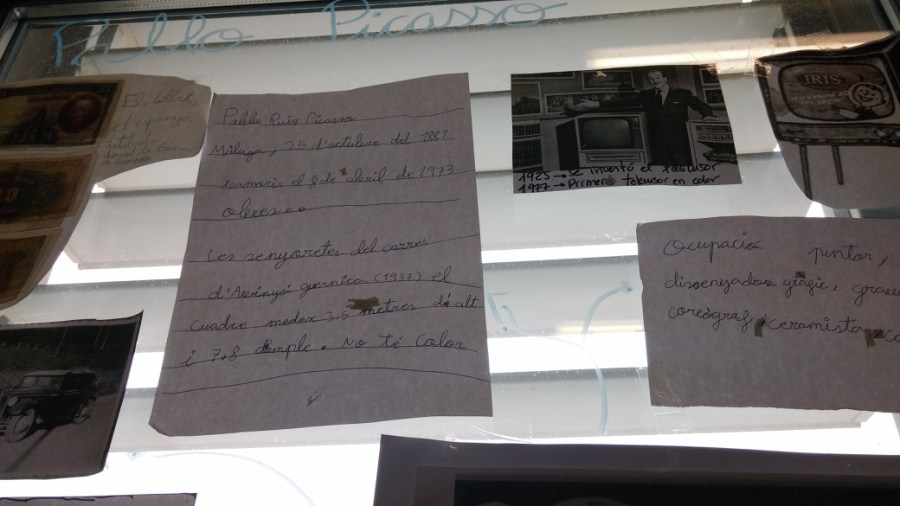 Pablo Picasso
El billet
d'espanya
Pablo Ruiz Picasso
Màlaga, 25 d'octubre del 1881
el 8 de abril de 1973
obres
Les senyoretes del carrer
d'Avinyó gernica (1937) el
cuadre medex 3.5 metres de alt
i 7,8 dample. No té Color
1925 → se inventó el televisor
1977 → Primer televisor en color
IRIS
Ocupació pintor,
disenyador gràgic,
coreògraf ceramista